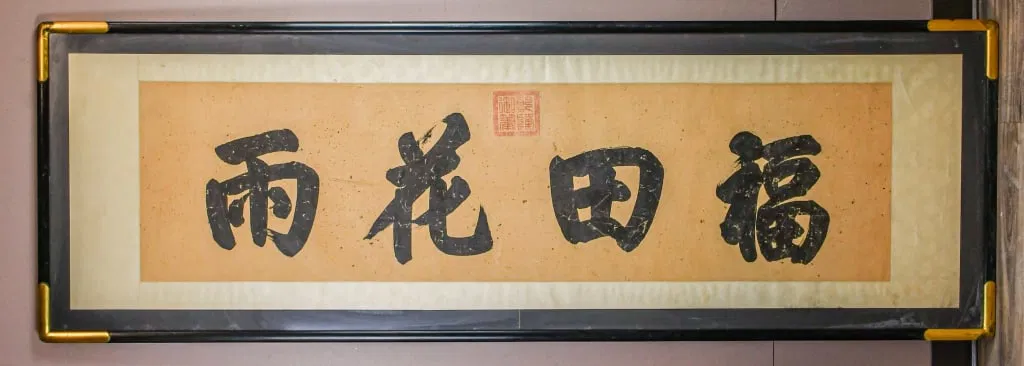 福田花雨